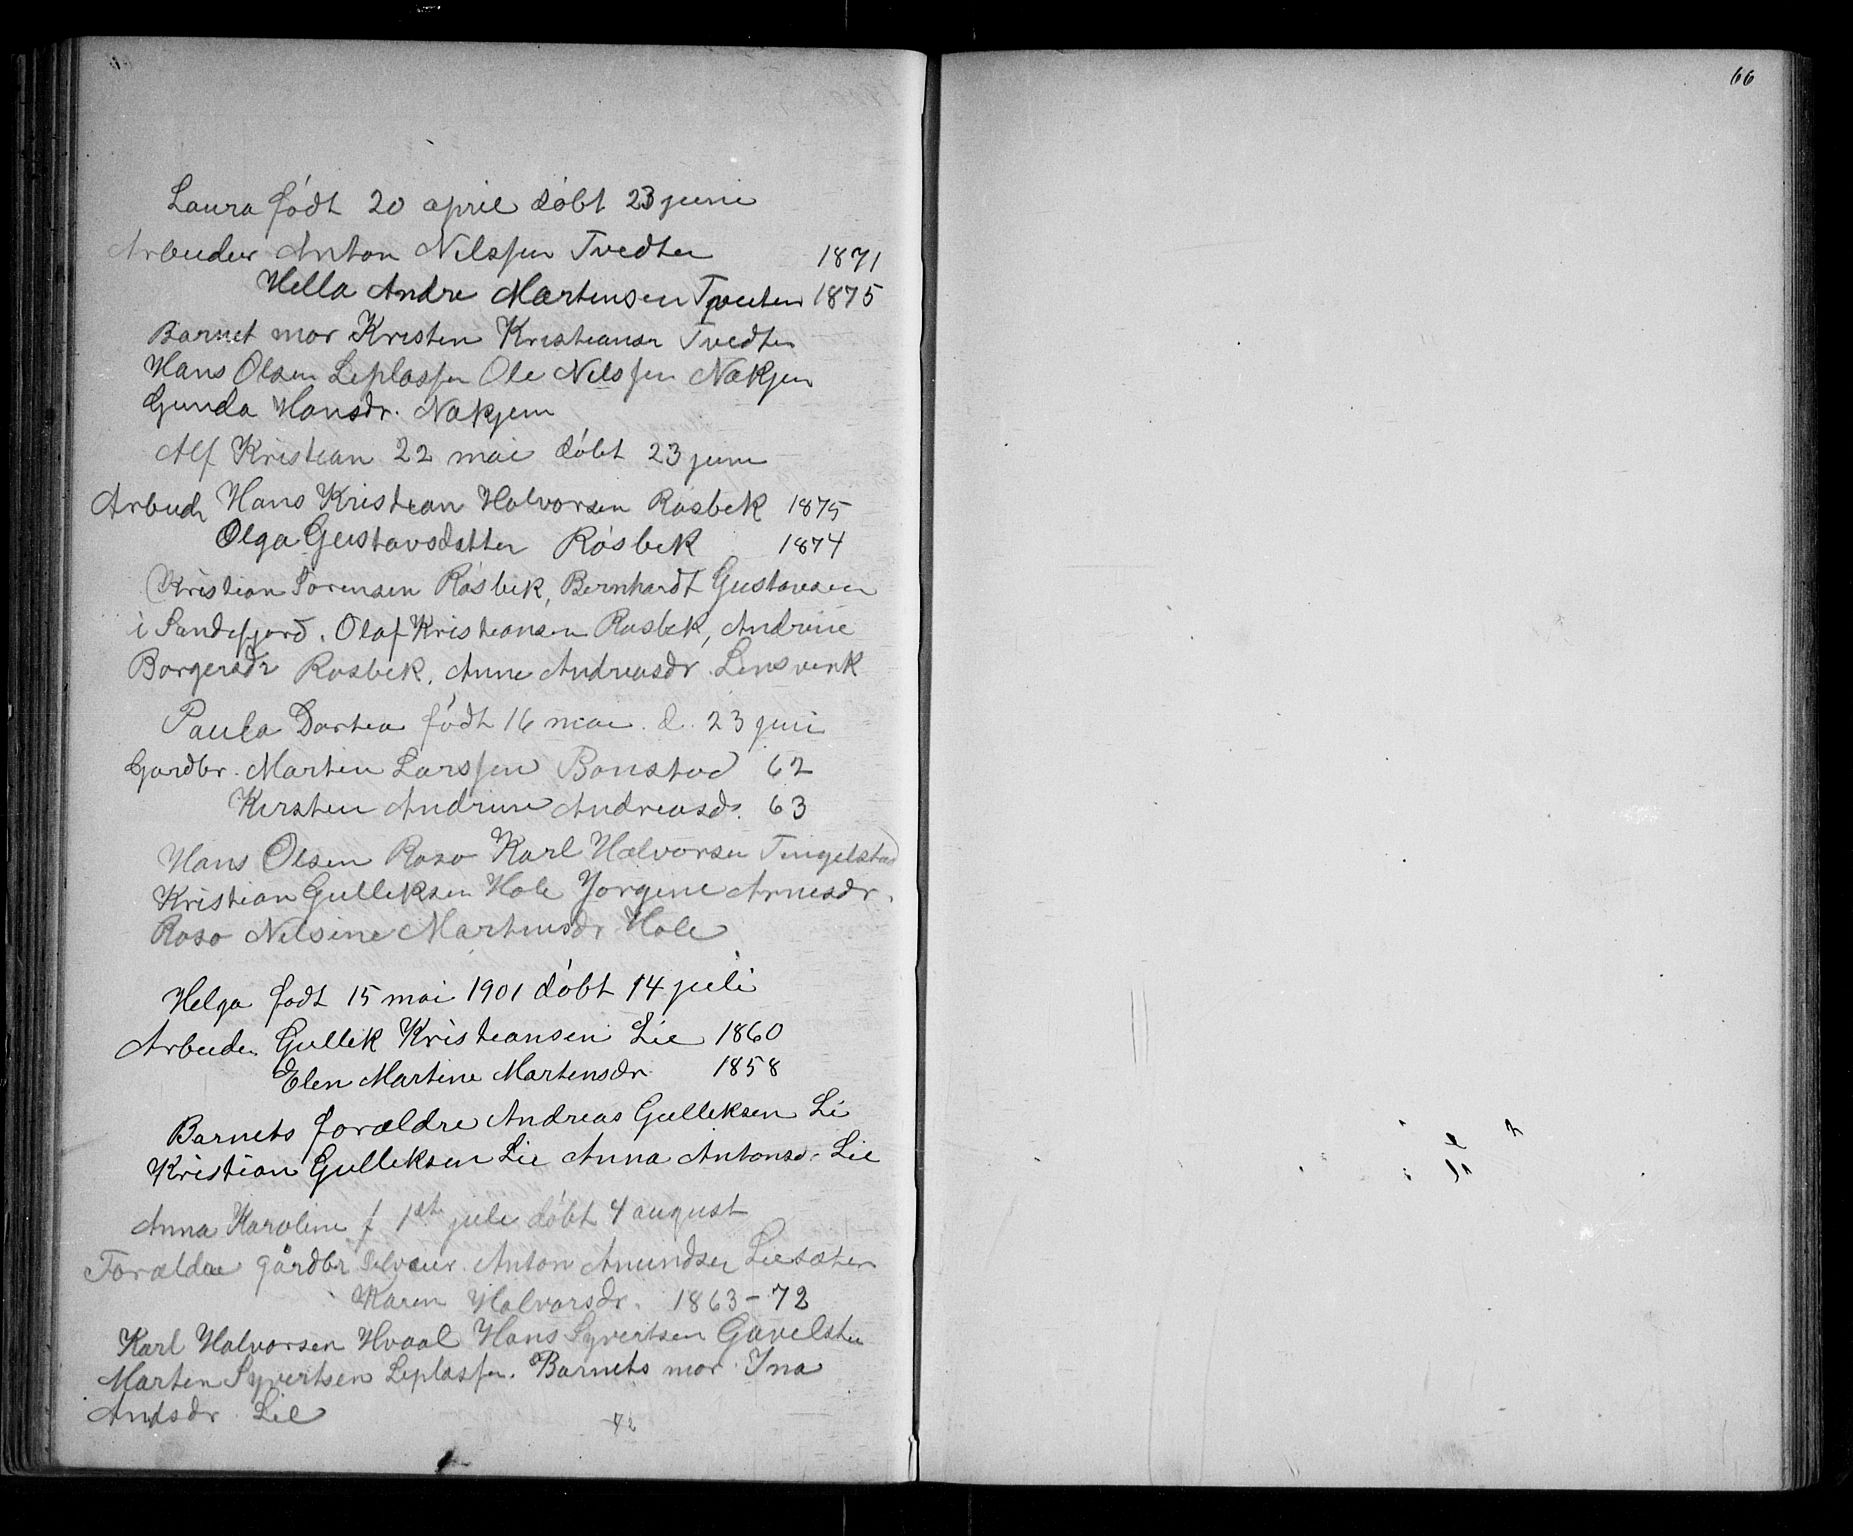 66
Laura født 20 april døbt 23 juni
Arbeider Anton Nilssen Tvedten 1871
Hella Andre Martensen Tveiten 1875
Barnet mor Kristen Kristiansen Tvedten
Hans Olsen Leplassen Ole Nilssen Nakjem
Gunda Hansdr. Nakjem
Alf Kristian 22 mai døbt 23 juni
Arbeidr Hans Kristian Halvorsen Rosbek 1875
Olga Gustavsdatter Røsbek 1874
Kristian Sørensen Røsbek, Bernhardt Gustavsen
i Sandefjord. Olaf Kristiansen Rosbek, Andrine
Borgersdr Rosbek. Anne Andreasdr
Paula Dortea født 16 mai d. 23 juni
Gardbr. Marten Larssen Bonstad 62
Kirsten Andrine Andreasd. 63
Hans Olsen Raso Karl Halvorsen Tingelstad
Kristian Gulleksen Hole Jorgine Arnesdr.
Raso Nilsine Martinsdr Hole
Helga født 15 mai 1901 døbt 14 juli
Arbeider Gullik Kristiansen Lie 1860
Elen Martine Martensdr 1858
Barnets forældre Andreas Gulleksen Li
Kristian Gulleksen Lie Anna Antonsd. Lie
Anna Karoline f 1st juli døbt 4 august
Forældre gårdbr Selveier. Anton Amundsen Liesæter
Karen Halvorsdr. 1863-72
Karl Halvorsen Hvaal Hans Syvertsen Gavelstu
Marten Syvertsen Leplassen. Barnets mor. Ina
Andsdr Lie